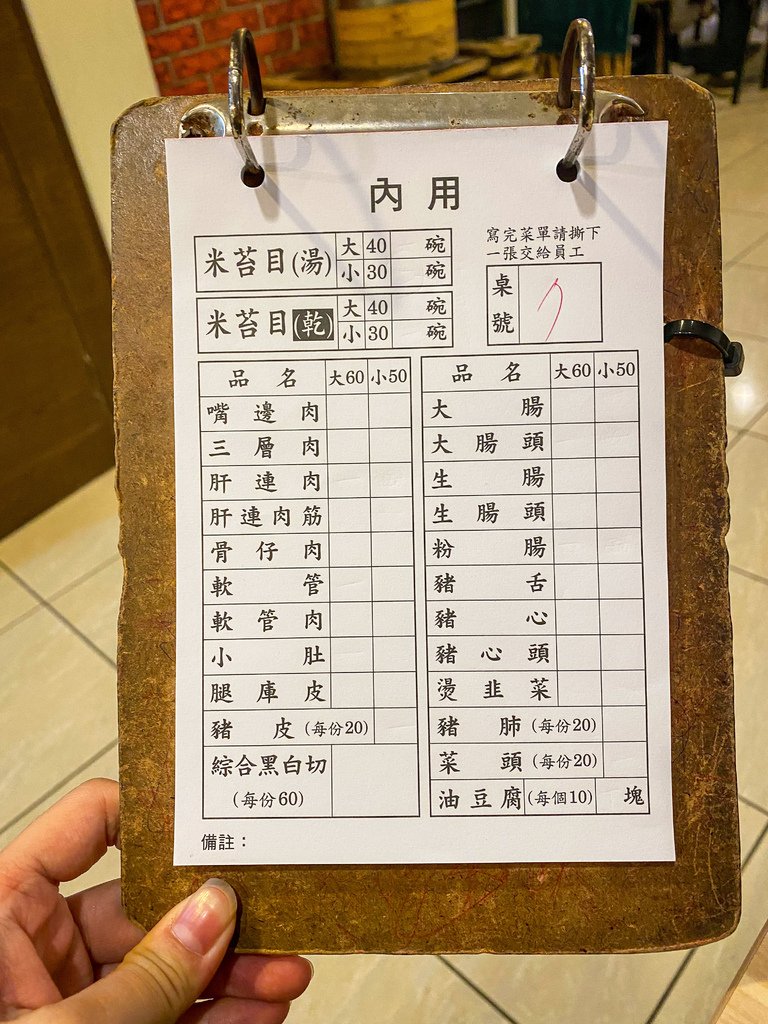 內用
寫完菜單請撕下
一張交給員工
米苔目(湯) 大 40 碗
小 30 碗
米苔目(乾) 大 40 碗
小 30 碗
桌號
品名 大60 小50
嘴邊肉
三層肉
肝連肉
肝連肉筋
骨仔肉
軟管
軟管肉
小肚
腿庫皮
豬皮(每份20)
綜合黑白切
(每份60)
品名 大60 小50
大腸
大腸頭
生腸
生腸頭
粉腸
豬舌
豬心
豬心頭
燙韭菜
豬肺(每份20)
菜頭(每份20)
油豆腐(每個10) 塊
備註：